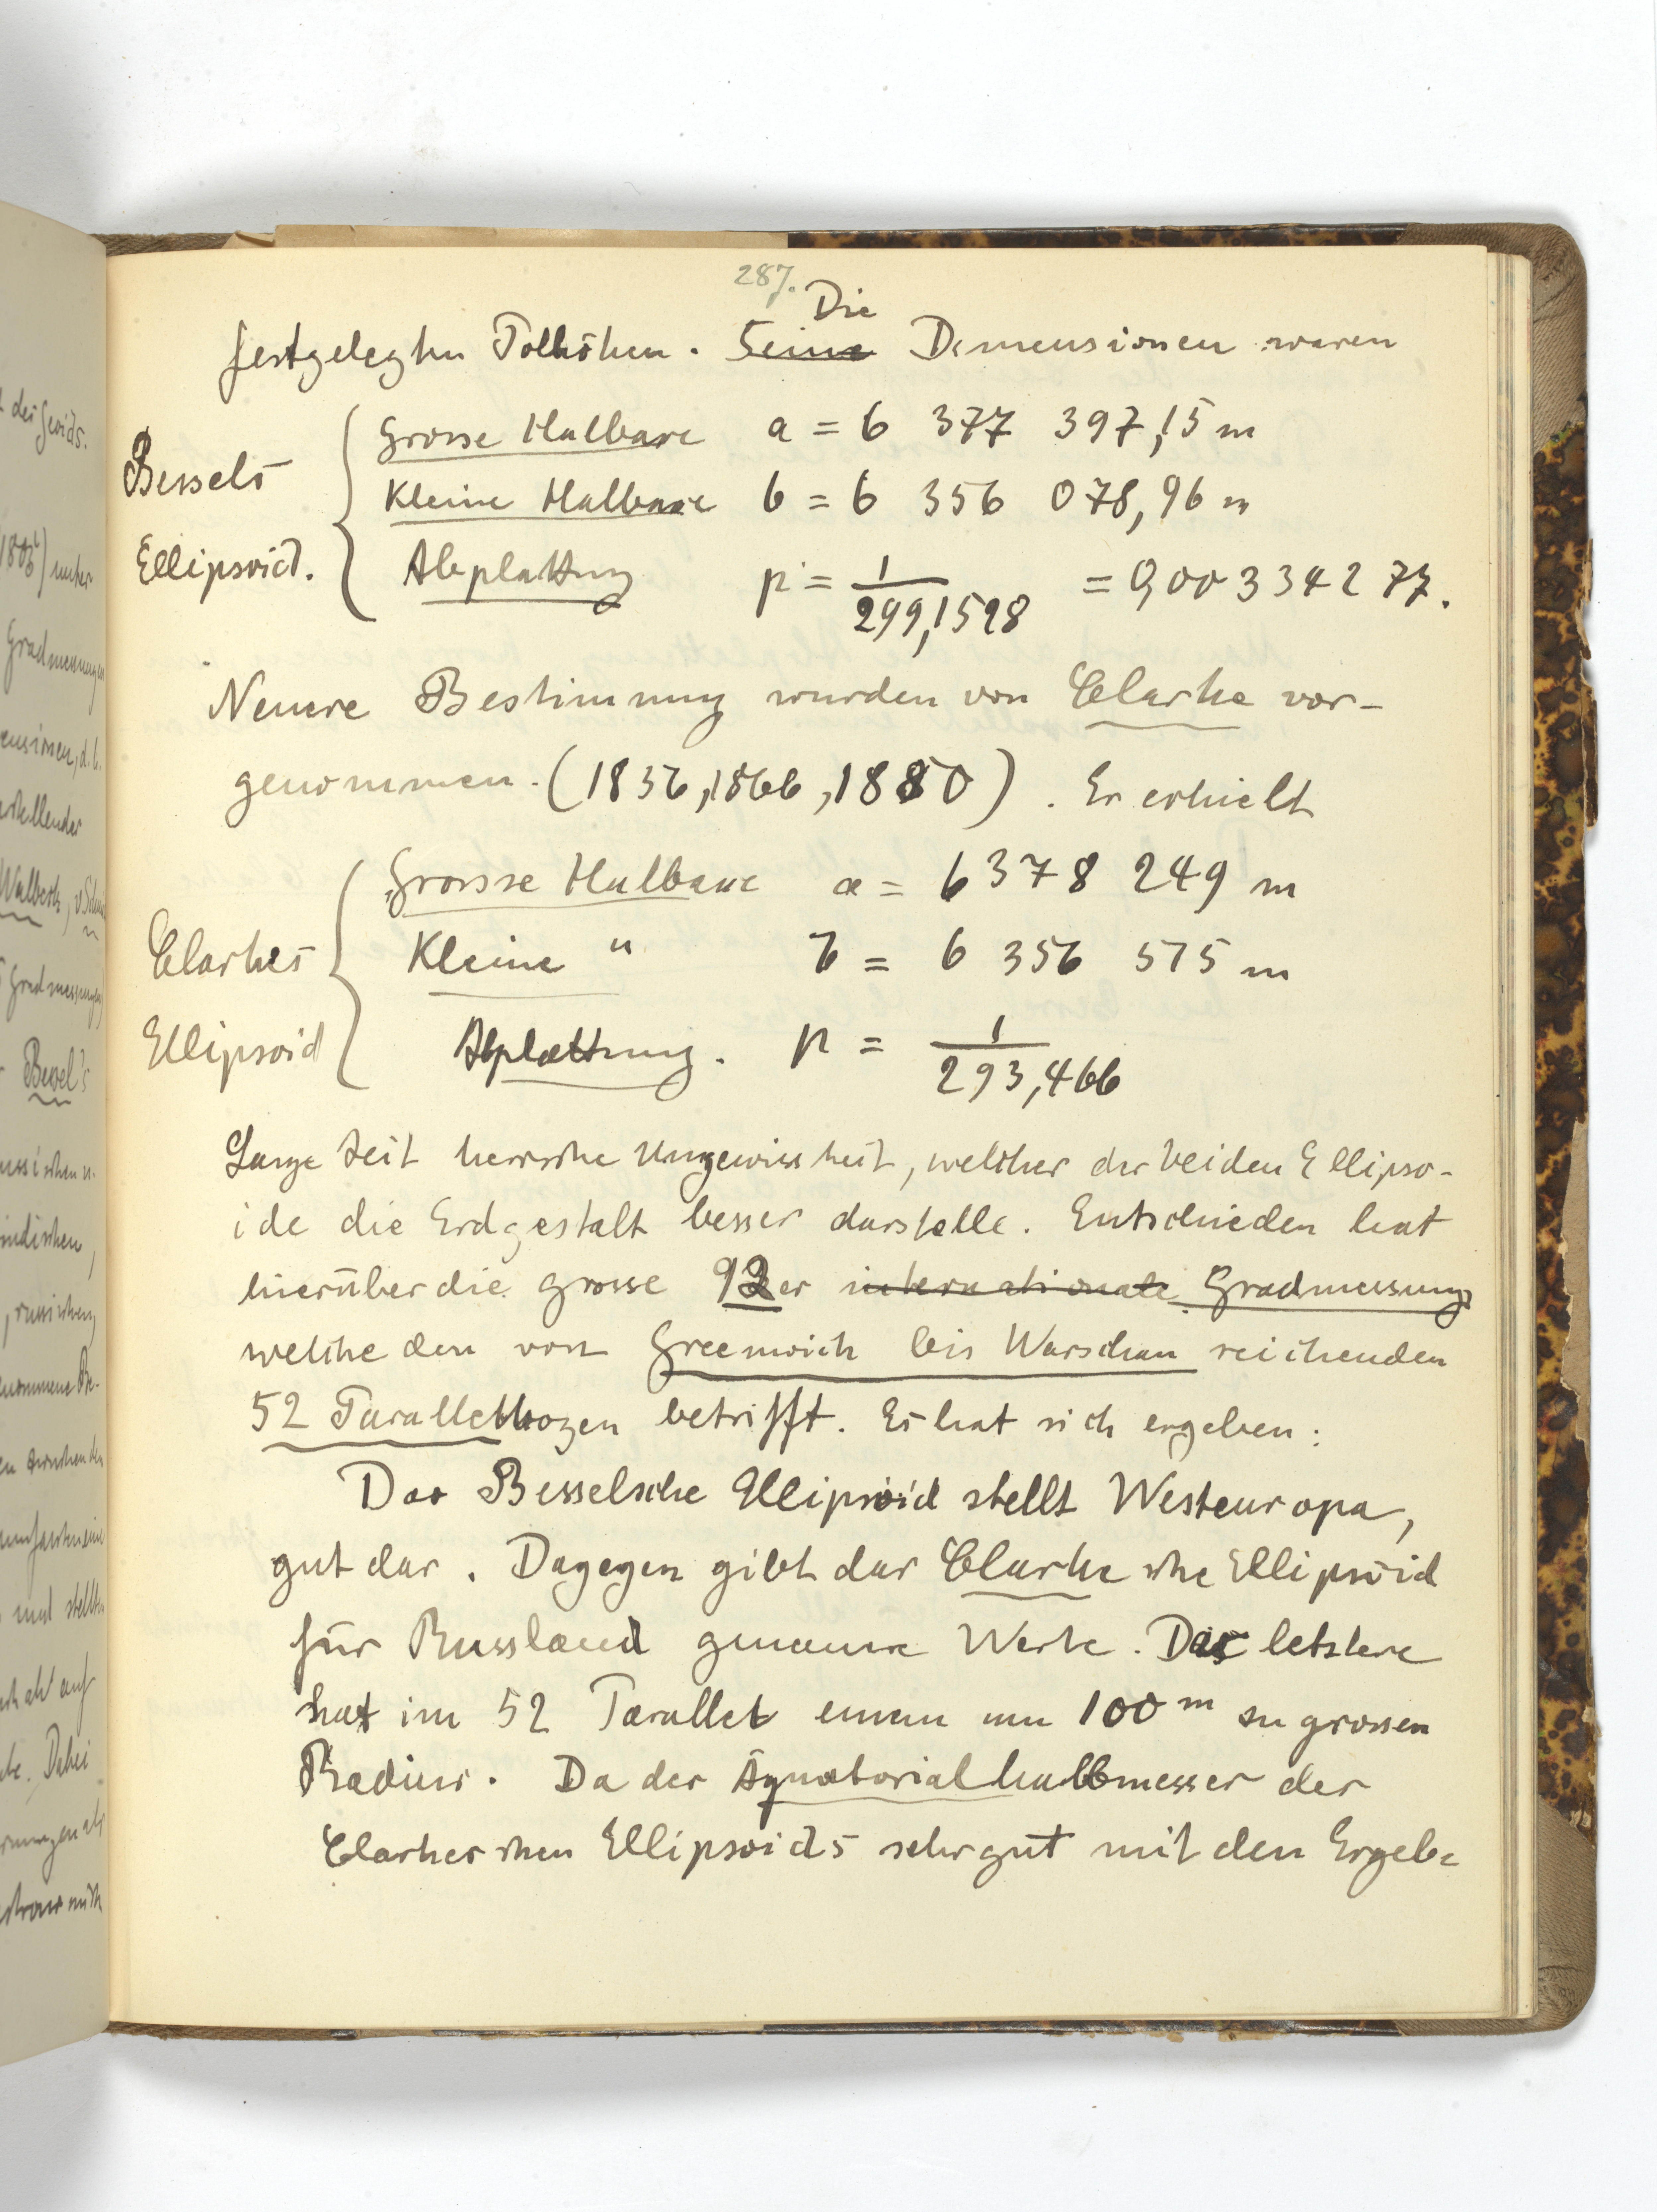 287.
Die
festgelegten Polhöhen. Seine Dimensionen waren
Bessels
Ellipsoid.
Grosse Halbaxe a = 6 377 397,15 m
Kleine Halbaxe b = 6 356 078,96 m
Abplattung p = 1/299,1528 = 0,003 342 77.
Neuere Bestimmung wurden von Clarke vor-
genommen. (1856, 1866, 1880). Er erhielt
Clarkes
Ellipsoid
Grosse Halbaxe a = 6 378 249 m
Kleine " b = 6 356 515 m
Abplattung. p = 1/293,466
Lange Zeit herrsche Ungewissheit, welcher der beiden Ellipso-
ide die Erdgestalt besser darstelle. Entschieden hat
hierüber die grosse 93er internationale Gradmessung,
welche den von Greenwich bis Warschau reichenden
52 Parallelbogen betrifft. Es hat sich ergeben:
Das Besselsche Ellipsoid stellt Westeuropa,
gut dar. Dagegen gibt das Clarkesche Ellipsoid
für Russland genauere Werte. Das letztere
hat im 52 Parallel einen um 100 m zu grossen
Radius. Da der Äquatorialhalbmesser des
Clarkeschen Ellipsoids sehr gut mit den Ergeb-
des Geoids.
unter
Gradmessungen
ensionen, d.h.
Walbeck,
Gradmessungen
Bessel's
indischen,
, russischen,
und stellten
Dabei